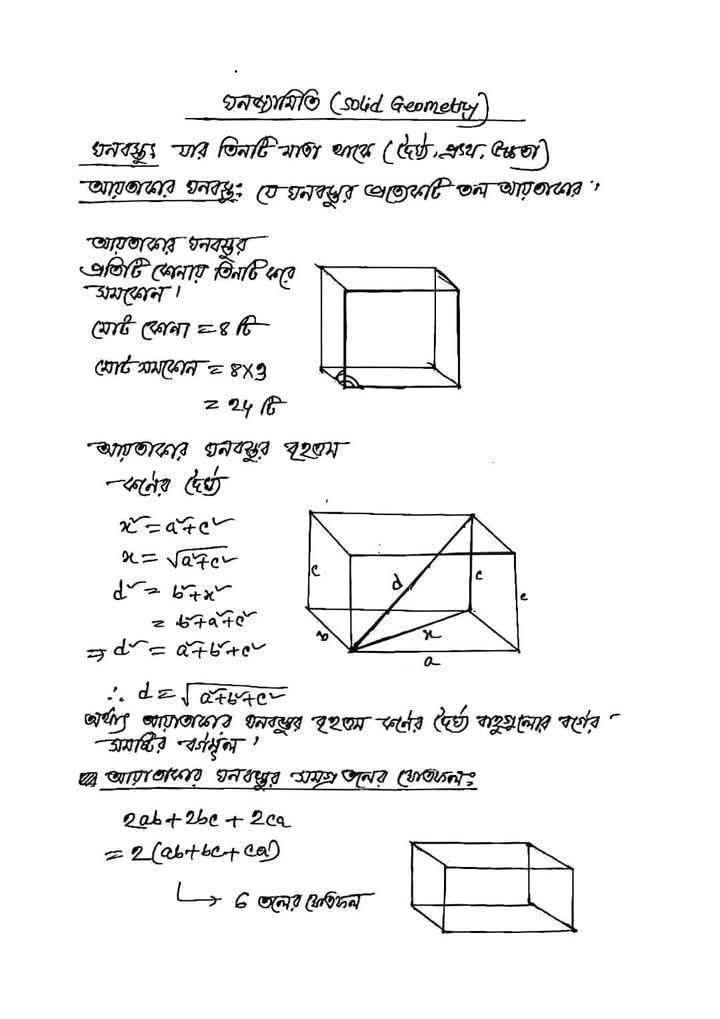 ঘনজ্যামিতি (Solid Geometry)
ঘনবস্তুঃ যার তিনটি মাত্রা থাকে (দৈর্ঘ্য, প্রস্থ, উচ্চতা)
আয়তাকার ঘনবস্তুঃ যে ঘনবস্তুর প্রত্যেকটি তল আয়তাকার।
আয়তাকার ঘনবস্তুর
প্রতিটি কোনায় তিনটি করে
সমকোন।
মোট কোনা = ৪ টি
মোট সমকোন = ৪×3
= 24 টি
আয়তাকার ঘনবস্তুর বৃহত্তম
কর্ণের দৈর্ঘ্য
x² = a²+c²
x = √a²+c²
d² = b²+x²
= b²+a²+c²
⇒ d² = a²+b²+c²
∴ d = √a²+b²+c²
c
d
c
c
b
x
a
অর্থাৎ আয়াতাকার ঘনবস্তুর বৃহত্তম কর্ণের দৈর্ঘ্য বাহুগুলোর বর্গের
সমষ্টির বর্গমূল।
আয়াতাকার ঘনবস্তুর সমগ্র তলের ক্ষেত্রফলঃ
2ab + 2bc + 2ca
= 2(ab+bc+ca)
↳ 6 তলের ক্ষেত্রফল